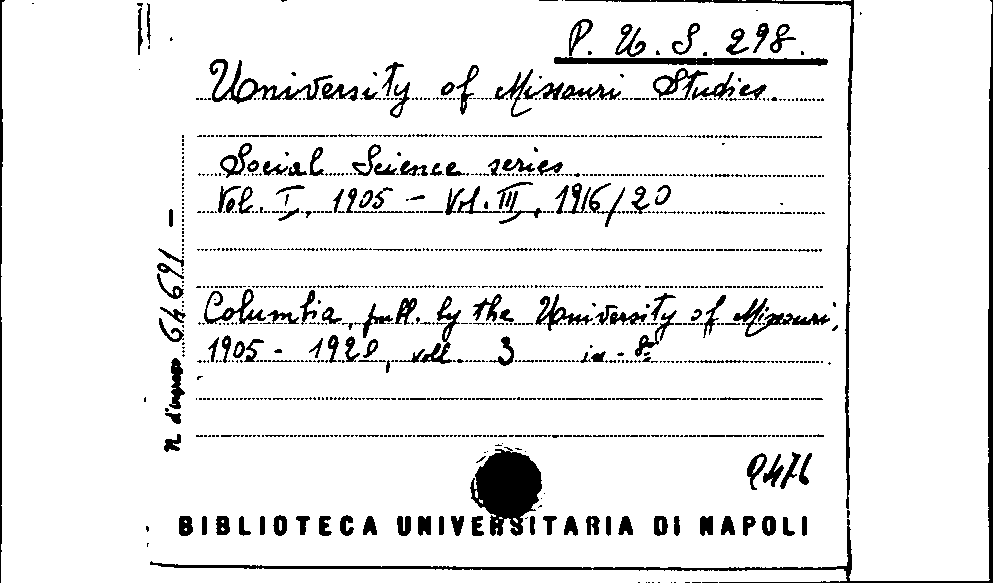 P. U. S. 298.
University of Missouri Studies.
Social Science series.
Vol. I, 1905 - Vol. III, 1916/20
Columbia, publ. by the University of Missouri,
1905 - 1920, voll. 3 in-8°
N. d'ingresso 64691 -
9476
BIBLIOTECA UNIVERSITARIA DI NAPOLI